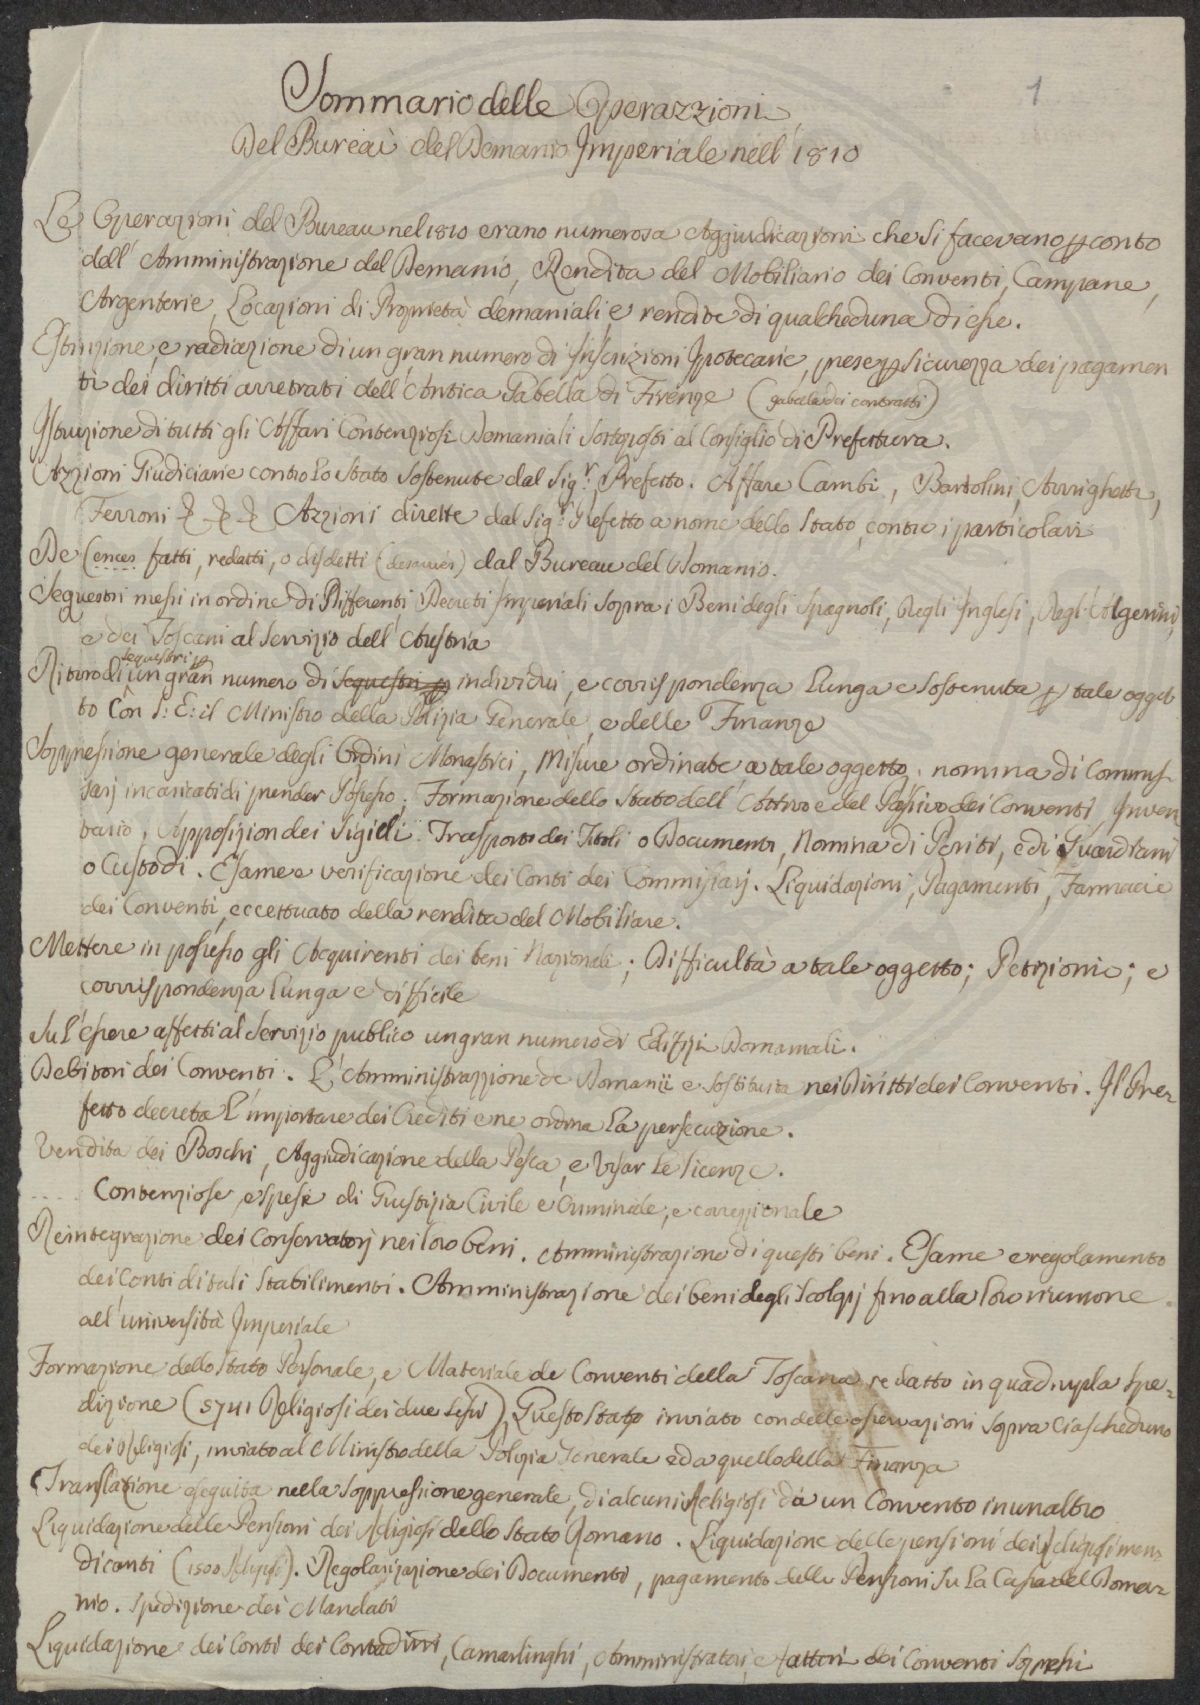 1
Sommario delle Operazzioni
Del Bureaù del Demanio Imperiale nell' 1810
Le Operazioni del Bureau nel 1810 erano numerosa Aggiudicazioni che si facevano p conto
dell' Amministrazione del Demanio, Rendita del Mobiliario dei Conventi, Campane,
Argenterie, Locazioni di Proprietà demaniali, e rendite di qualcheduna di esse.
Estinzione, e radiazione di un gran numero di Inscrizioni Ipotecarie, prese p sicurezza dei pagamen
ti dei diritti arretrati dell' Antica Gabella di Firenze (gabella dei contratti)
Istruzione di tutti gli Affari Contenziosi Demaniali sottoposti al Consiglio di Prefettura.
Azzioni Giudiciarie contro lo Stato sostenute dal Sig.r Prefetto. Affare Cambi, Bartolini, Arrighetti,
Ferroni & & & Azzioni dirette dal Sig.r Prefetto a nome dello Stato, contro i particolari
De (ences fatti, redatti, o disdetti ( ) dal Bureau del Domanio.
Sequestri messi in ordine di Differenti Decreti Imperiali sopra i Beni degli Spagnoli, Degli Inglesi, Degl' Algerini,
e dei Toscani al Servizio dell' Austria
sequestri p
Ritiro di un gran numero di sequestri p individui, e corrispondenza lunga e sostenuta p tale ogget
to con S: E: il Ministro della Polizia Generale, e delle Finanze
Soppressione generale degli Ordini Monastici, Misure ordinate a tale oggetto, nomina di Commis
sarj incaricati di prender Possesso. Formazione dello Stato dell' Attivo e del Passivo dei Conventi, Inven
tario, Apposizion dei Sigilli. Trasporto dei Titoli o Documenti, Nomina di Periti, e di Guardiani
o Custodi. Esame e verificazione dei Conti dei Commissarj. Liquidazioni, Pagamenti, Farmacie
dei Conventi, eccettuato della rendita del Mobiliare.
Mettere in possesso gli Acquirenti dei beni Nazionali; Difficultà a tale oggetto; Petizioni; e
corrispondenza lunga e difficile
Sul' essere affetti al Servizio publico un gran numero di Edifizi Domaniali.
Debitori dei Conventi. L' Amministrazzione de Domanii e sostituita nei Diritti dei Conventi. Il Pre=
fetto decreta l' importare dei Crediti e ne ordina la persecuzione.
Vendita dei Boschi, Aggiudicazione della Pesca, e Visar le licenze.
.... Contenziose, e spese di Giustizia Civile e Criminale, e correzionale
Reintegrazione dei Conservatorj nei loro beni. Amministrazione di questi beni. Esame e regolamento
dei Conti di tali Stabilimenti. Amministrazione dei beni degli Scolopj fino alla loro riunione
all' università Imperiale
Formazione dello Stato Personale, e Materiale de Conventi della Toscana redatto in quadrupla spe=
dizione (5741 Religiosi dei due sessi), Questo Stato inviato con delle osservazioni sopra ciascheduno
dei Religiosi, inviato al Ministro della Polizia Generale ed a quello della Finanza
Translazione eseguita nella soppressione generale, di alcuni Religiosi da un Convento in un altro
Liquidazione delle Pensioni dei Religiosi dello Stato Romano. Liquidazione delle pensioni dei Religiosi men=
dicanti (1500 Religiosi). Regolarizazione dei Documenti, pagamento delle Pensioni su la Cassa del Doma=
nio. Spedizione dei Mandati
Liquidazione dei Conti dei Contadini, Camarlinghi, Amministratori, e fattori dei Conventi Soppressi